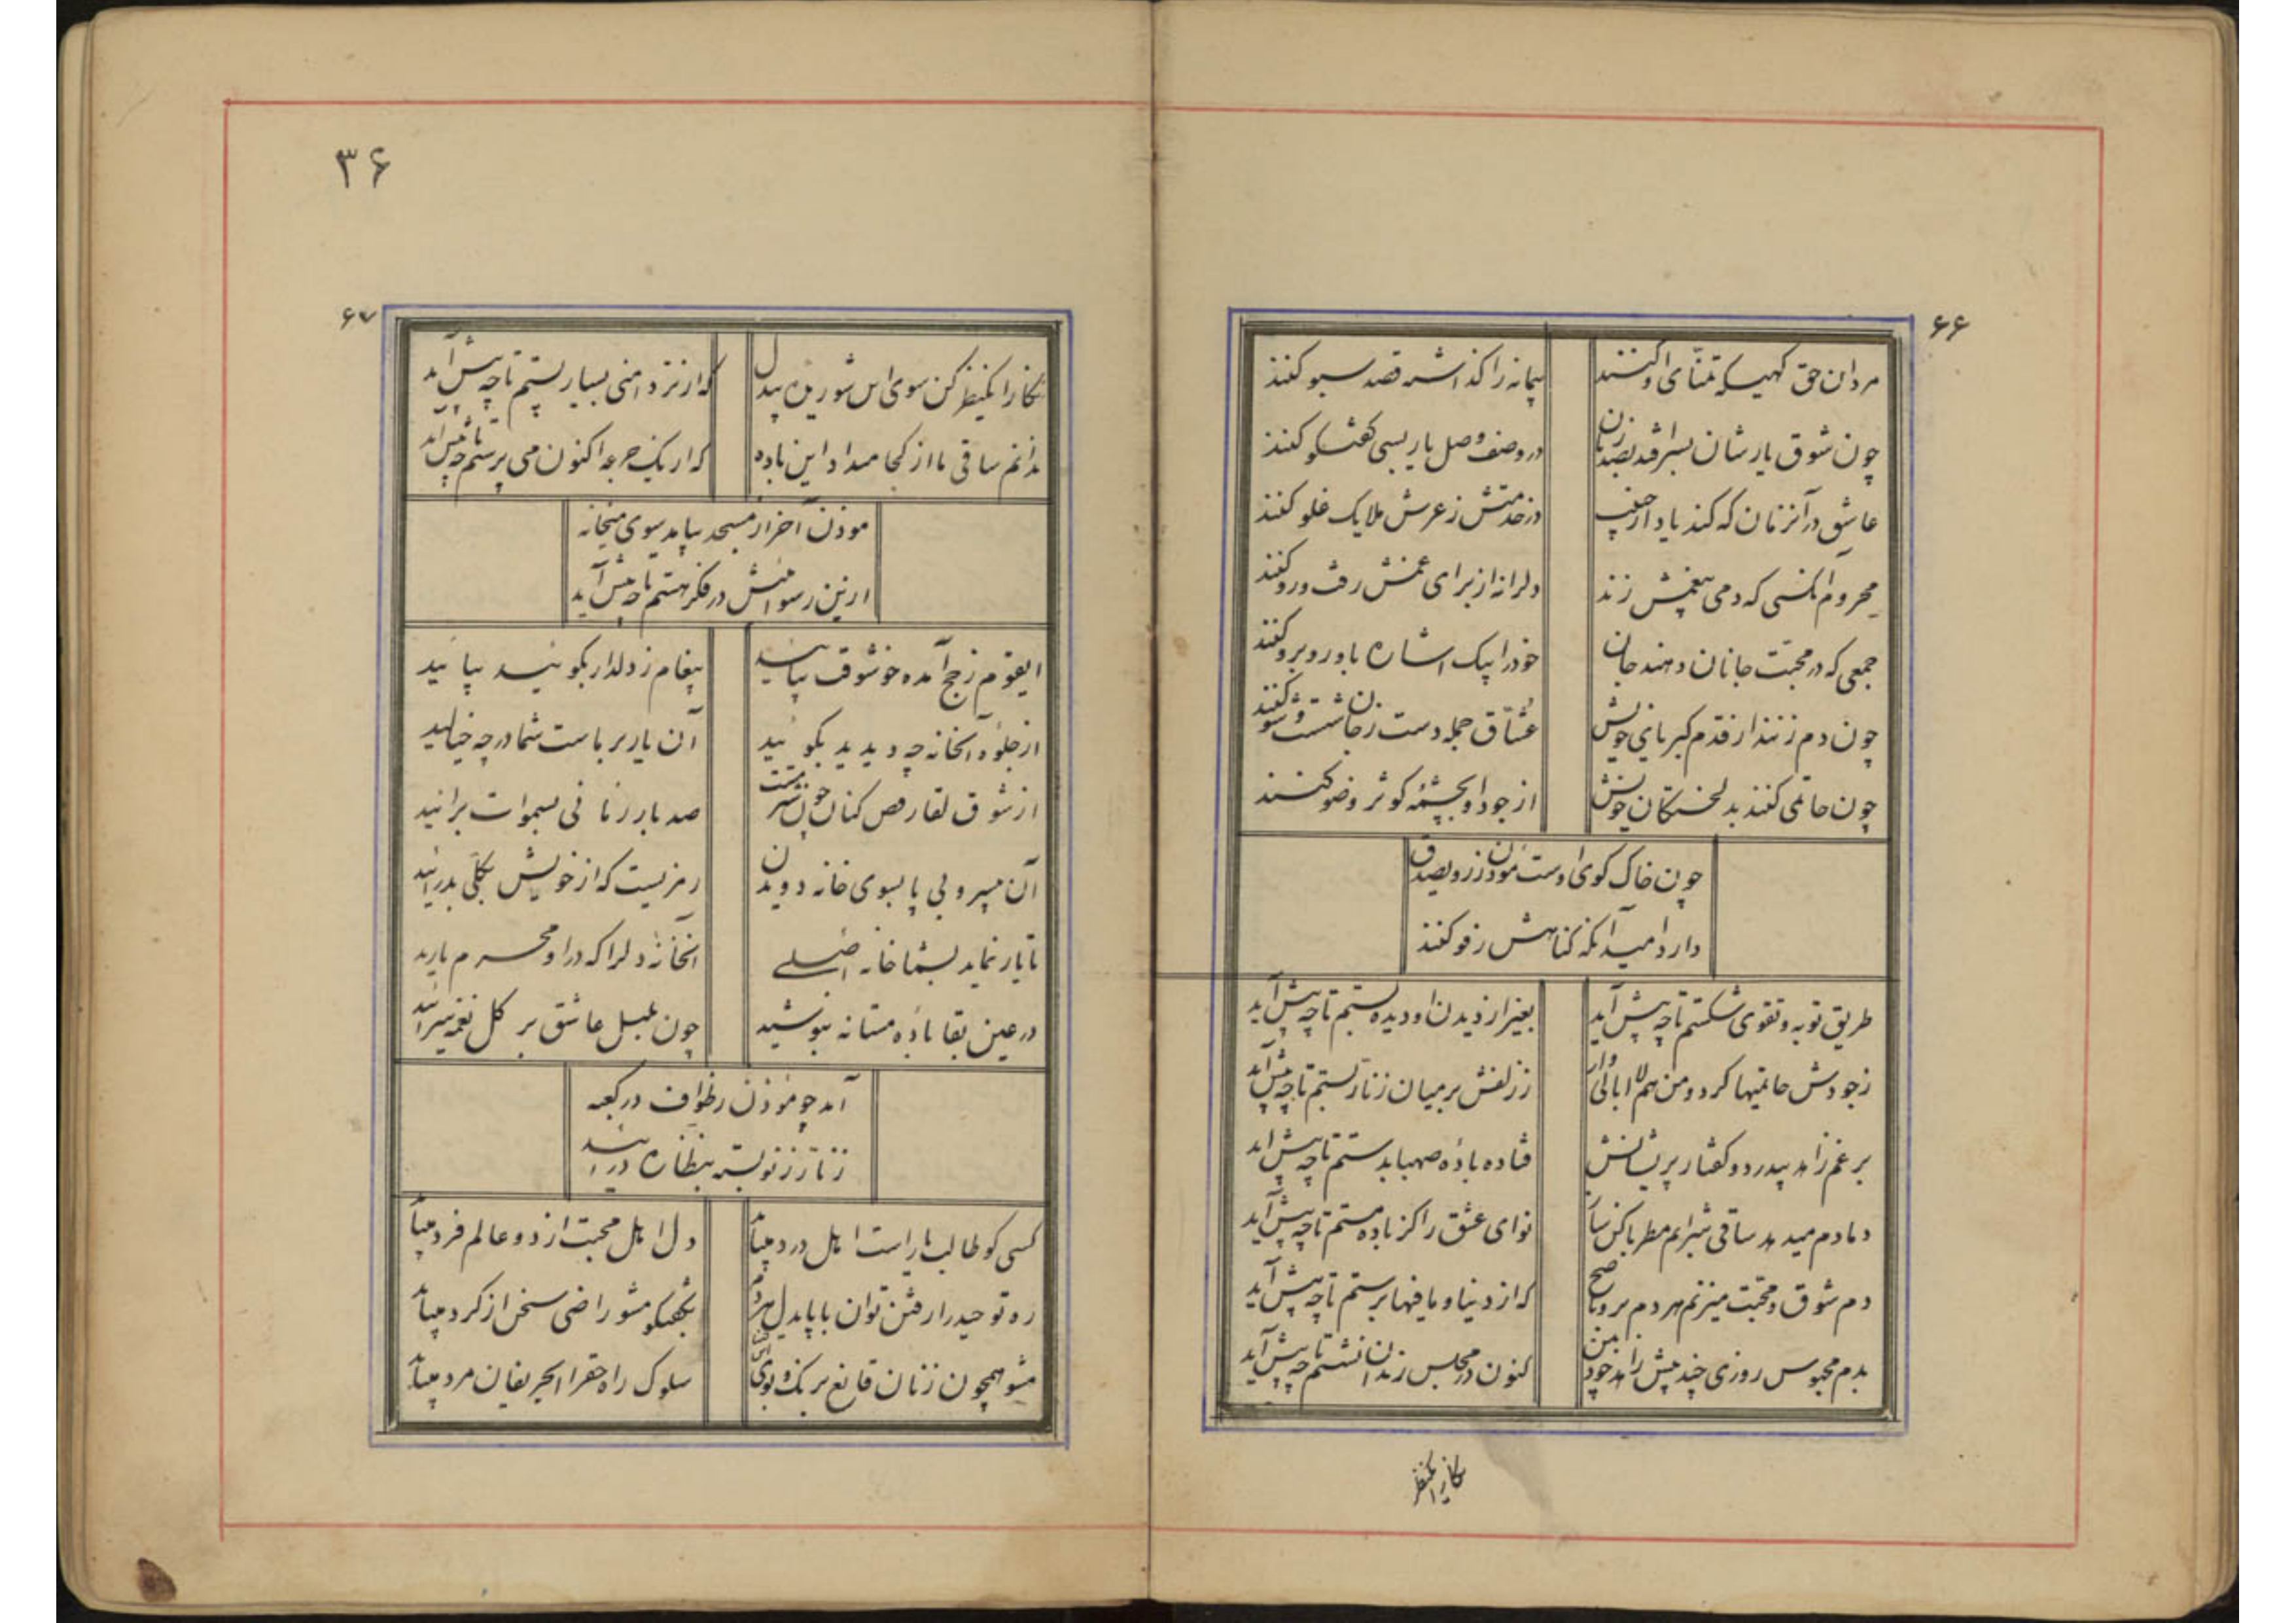 ۶۶
مردان حق گهیکه تمنای او کنند
پیمانه را گذاشته قصد سبو کنند
چون شوق یارشان بسر افتد بصد زبان
در وصف وصل یار بسی گفتگو کنند
عاشق در آنزمان که کند یاد از
در خدمتش ز عرش ملایک غلو کنند
محروم آنکسی که دمی بیغمش زند
دلرا نه از برای غمش رفت و رو کنند
جمعی که در محبت جانان دهند جان
خود را بیک اشاره باو روبرو کنند
چون دم زنند از قدم کبریای خویش
عشاق جمله دست ز جان شست و شو کنند
چون حاتمی کنند بدلخستگان خویش
از جود او بچشمهٔ کوثر وضو کنند
چون خاک کوی اوست موذن ز رو بصدق
دارد امید آنکه گناهش رفو کنند
طریق توبه و تقوی شکستم تا چه پیش آید
بغیر از دیدن او دیده بستم تا چه پیش آید
ز جودش حاتمیها کرد و من هم لا ابالی وار
ز زلفش بر میان زنار بستم تا چه پیش آید
برغم زاهد بیدرد و گفتار پریشانش
فتاده بادهٔ صهبا بدستم تا چه پیش آید
دمادم میدهد ساقی شرابم مطربا کن ساز
نوای عشق را کز باده مستم تا چه پیش آید
دم شوق و محبت میزنم هر دم برو ناصح
که از دنیا و مافیها برستم تا چه پیش آید
بدم محبوس روزی چند پیش زاهد خودبین
کنون در مجلس رندان نشستم تا چه پیش آید
نگارا یکنظر
۳۶
۶۷
نگارا یکنظر کن سوی این شوریده بیدل
که از نزد منی بسیار پستم تا چه پیش آید
ندانم ساقی ما از کجا میداد این باده
که از یک جرعه اکنون می پرستم تا چه پیش آید
موذن آخر از مسجد بیامد سوی میخانه
ازین رسوائیش در فکر هستم تا چه پیش آید
ایقوم ز حج آمده خوشوقت بیائید
پیغام ز دلدار بگوئید بیائید
از جلوهٔ آنخانه چه دیدید بگوئید
آن یار بر ماست شما در چه خیالید
از شوق لقا رقص کنان چون شتر مست
صد بار زنا فی بسموات برانید
آن بیسر و بی پا بسوی خانه دویدن
رمزیست که از خویش بکلی بدر آئید
تا یار نماید بشما خانه اصلی
آنخانهٔ دلرا که در او محرم یارید
در عین بقا بادهٔ مستانه بنوشید
چون بلبل عاشق بر گل نغمه سرائید
آمد چو موذن بطواف در کعبه
زنار ز نو بسته بنظاره در آئید
کسی کو طالب یار است اهل درد میباید
دل اهل محبت از دو عالم فرد میباید
ره توحید را رفتن توان با پایدل هردم
بگفتگو مشو راضی سخن از کرد میباید
مشو همچون زنان قانع برنگ و بوی
سلوک راه حقرا ایحریفان مرد میباید